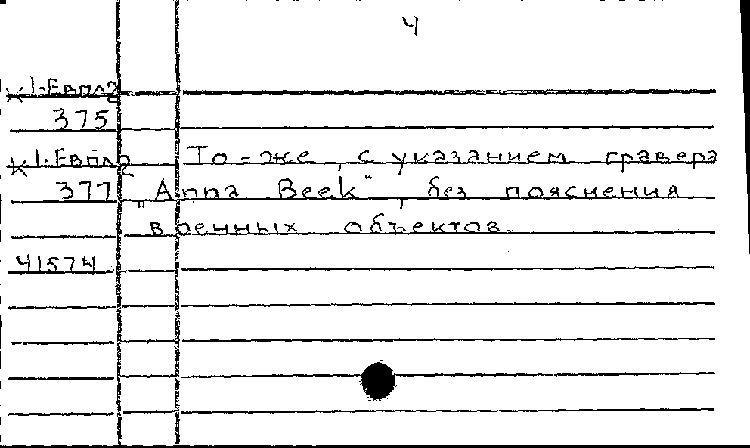 4
К 1-Евпл2
375
К 1-Евпл2 То-же, с указанием гравера
377 „Anna Beek", без пояснения
военных объектов.
41574